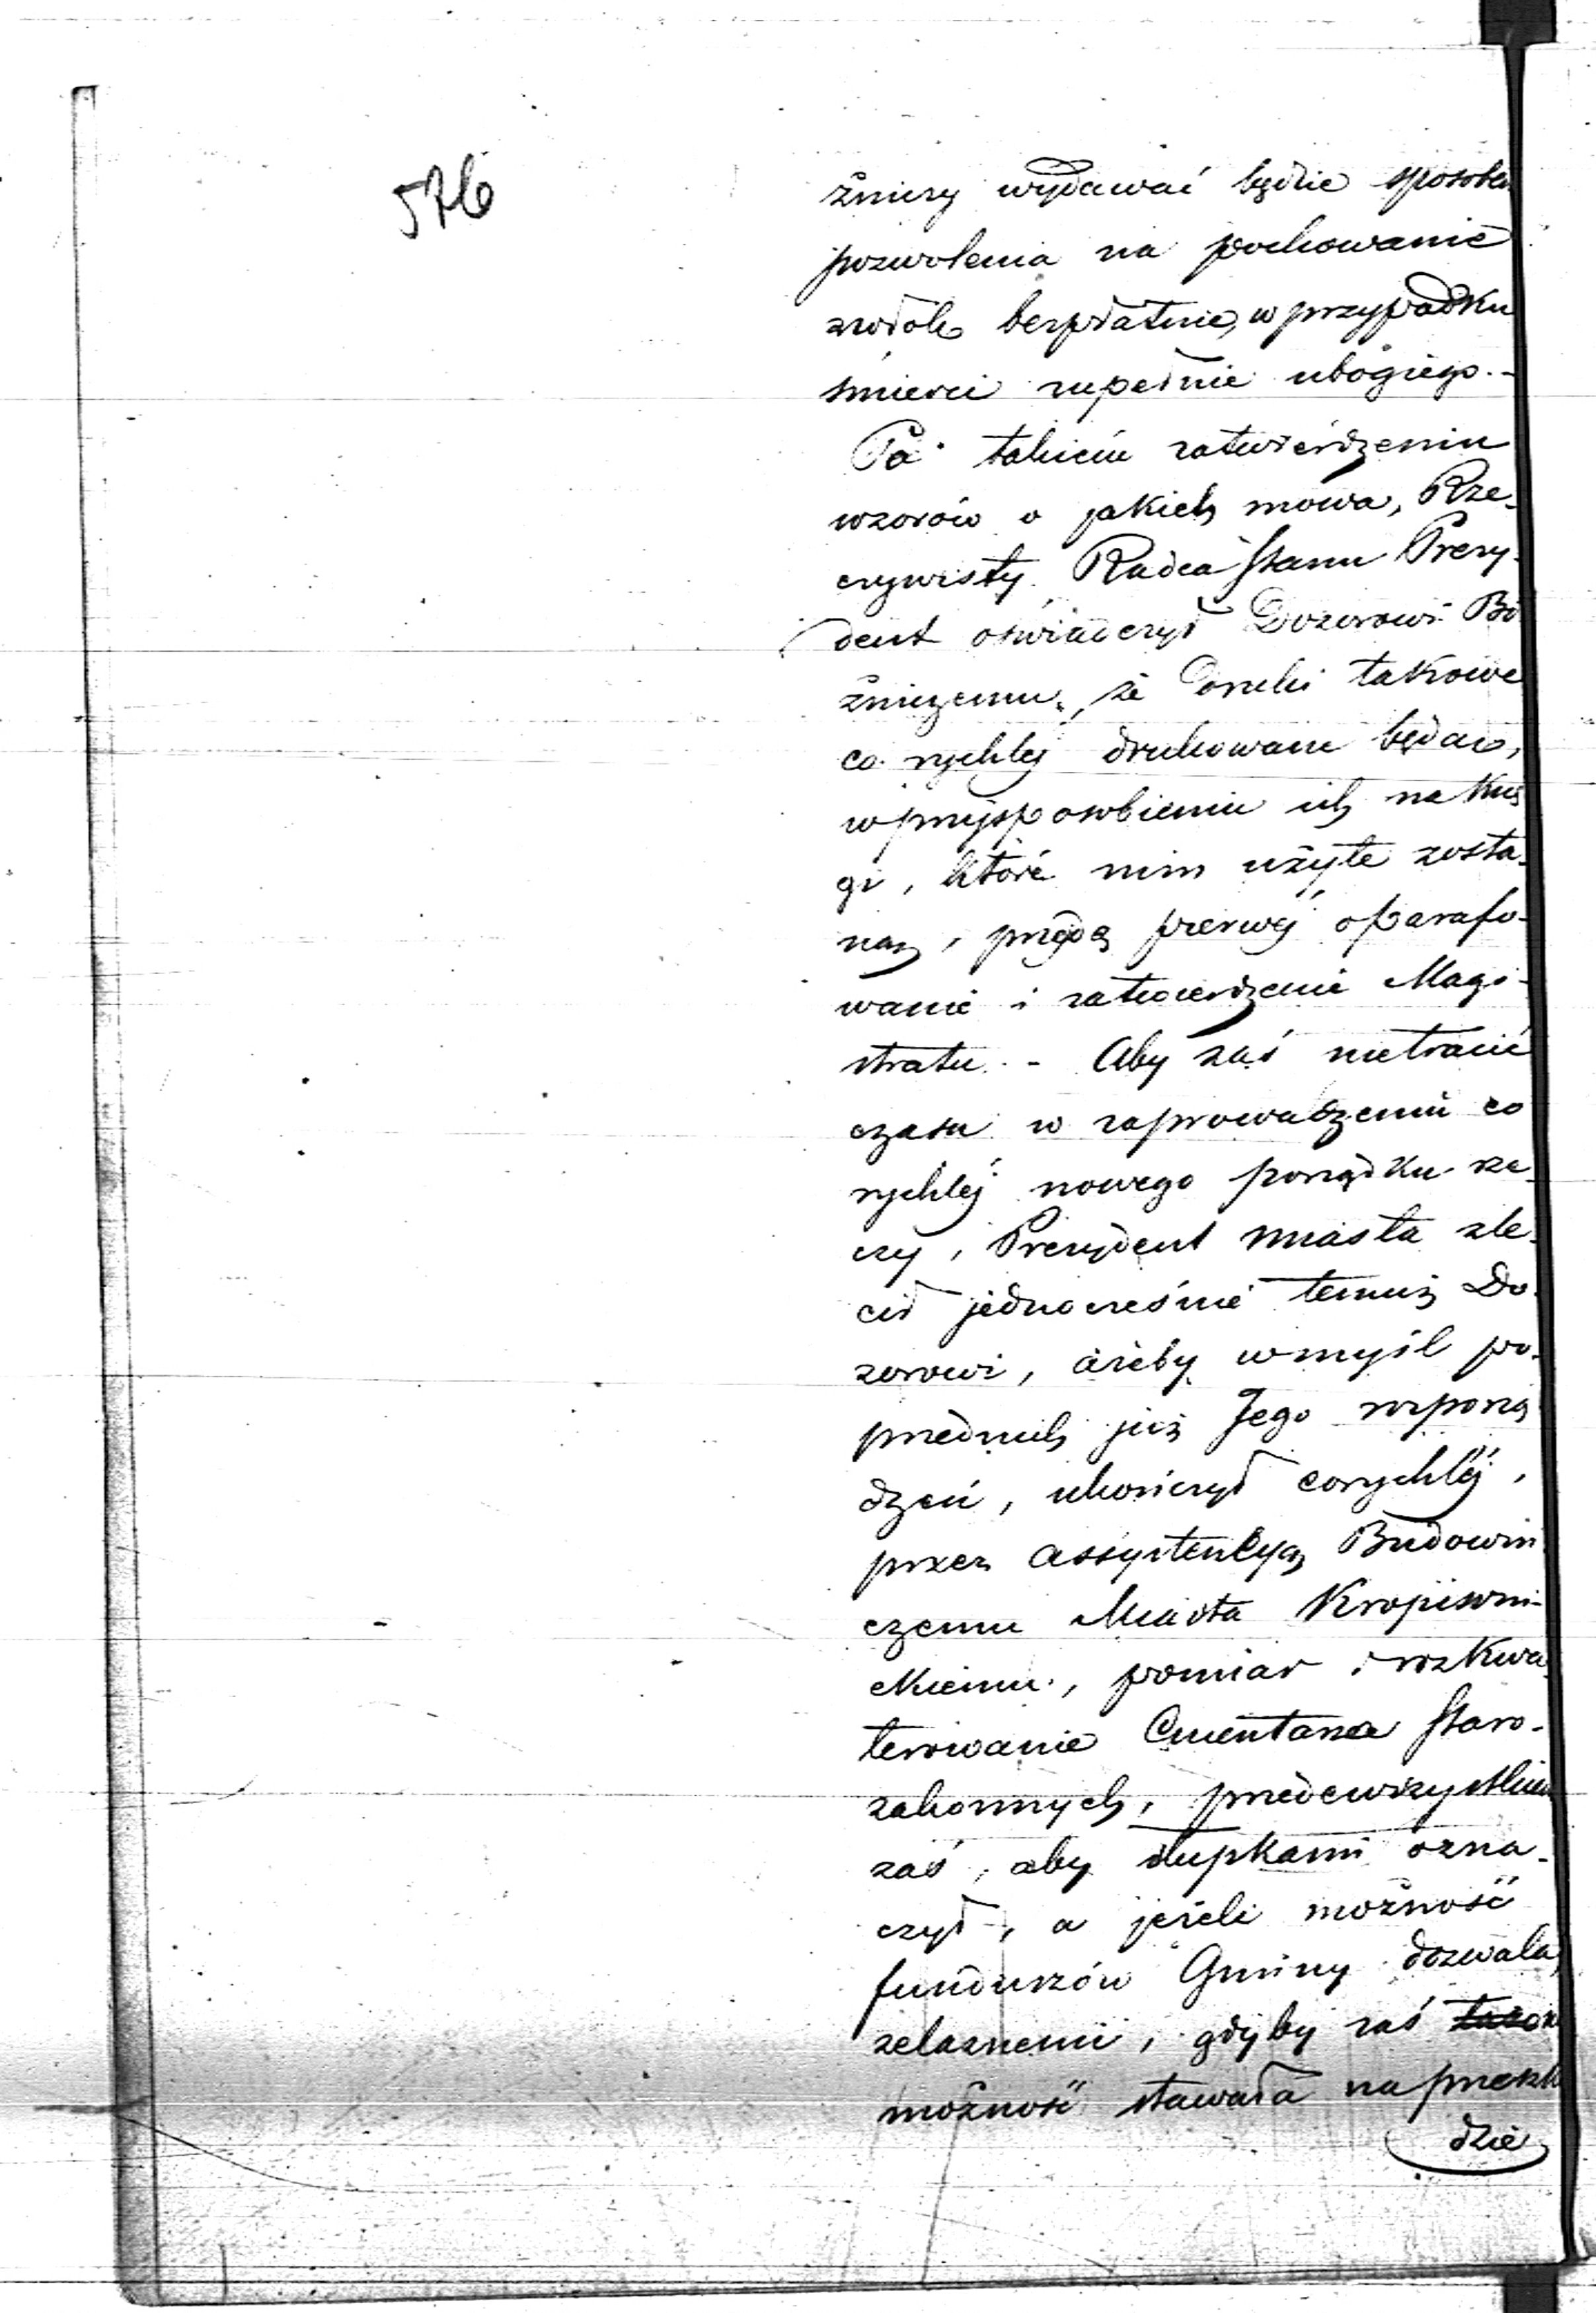 576
żniczy wydawać będzie sposobem
pozwolenia na pochowanie
zwłok bezpłatnie, w przypadku
śmierci zupełnie ubogiego. -
Po takiem zatwierdzeniu
wzorów o jakich mowa, Rze-
czywisty Radca Stanu Prezy-
dent oświadczył Dozorowi Bó
żniczemu, że druki takowe
co rychlej drukowane będą,
w przysposobieniu ich na Księ
gi, które nim użyte zosta-
ną, przejdą pierwej oparafo-
wanie i zatwierdzenie Magi-
stratu. - Aby zaś nietracić
czasu w zaprowadzeniu co
rychlej nowego porządku rze
czy, Prezydent miasta zle-
cił jednocześnie temuż Do-
zorowi, ażeby w myśl po-
przednich już Jego rozporzą
dzeń, ukończył corychlej,
przez assystencyą Budowni
czemu Miasta Kropiwni-
ckiemu, pomiar i rozkwa-
terowanie Cmentarza Staro-
zakonnych, przedewszystkiem
zaś, aby słupkami ozna-
czył, a jeżeli możność
funduszów Gminy dozwala,
żelaznemi, gdyby zaś
możność stawała na przeszko
dzie